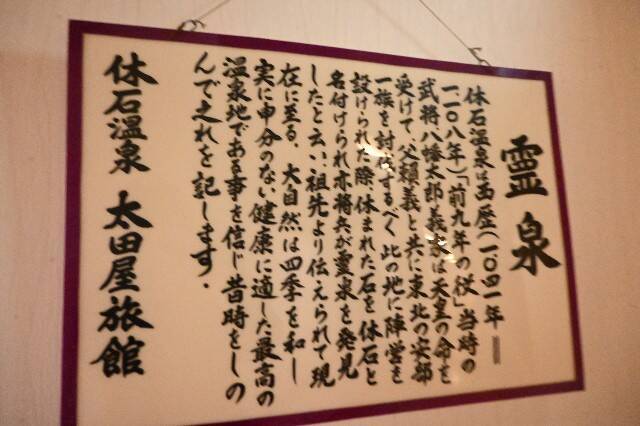 霊泉
休石温泉は西歴(一〇四一年=
一一〇八年)「前九年の役」当時の
武将八幡太郎義家は天皇の命を
受けて、父頼義と共に東北の安部
一族を討伐するべく此の地に陣営を
設けられた際、休まれた石を休石と
名付けられ亦将兵が霊泉を発見
したと云い、祖先より伝えられて現
在に至る、大自然は四季を和し
実に申分のない健康に適した最高の
温泉地である事を信じ昔時をしの
んで之れを記します.
休石温泉 太田屋旅館